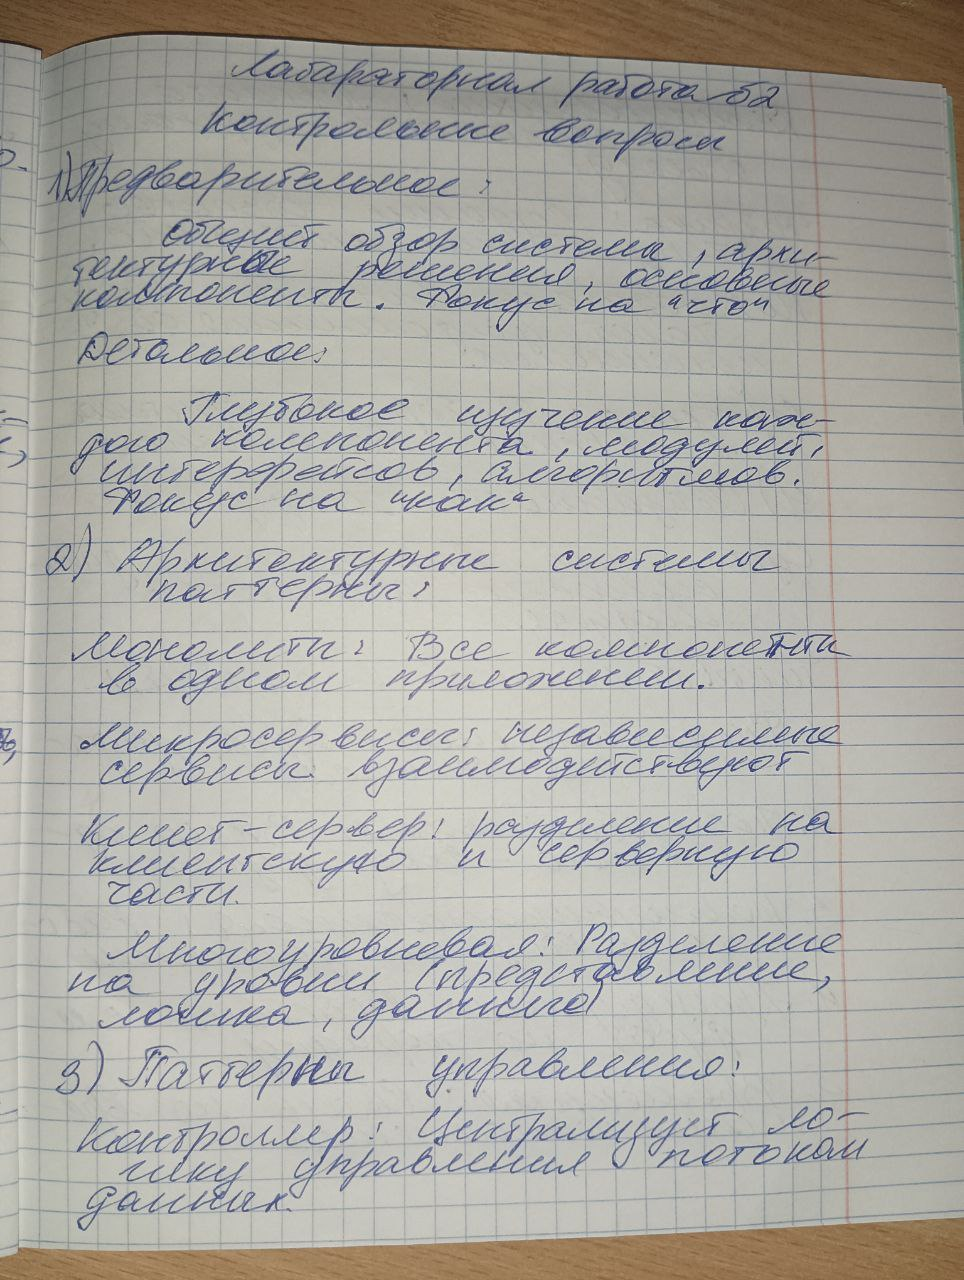 Лабараторная работа №2
Контрольные вопросы
1) Предварительное:
Общий обзор системы, архи-
тектурные решения, основные
компоненты. Фокус на "что"
Детальное:
Глубокое изучение каж-
дого компонента, модулей,
интерфейсов, алгоритмов.
Фокус на "как"
2) Архитектурные системы
паттерны:
Монолиты: Все компоненты
в одном приложении.
Микросервисы: независимые
сервисы взаимодействуют
Клиет-сервер: разделение на
клиентскую и серверную
части.
Многоуровневая: Разделение
на уровни (представление,
логика, данные)
3) Паттерны управления:
Контроллер: Централизует ло-
гику управления потоком
данных.